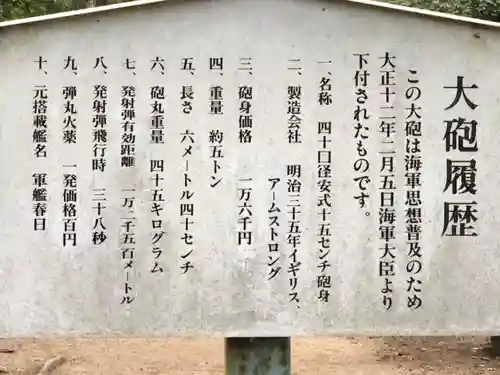 大砲履歴
この大砲は海軍思想普及のため
大正十二年二月五日海軍大臣より
下付されたものです。
一、名称　四十口径安式十五センチ砲身
二、製造会社　明治三十五年イギリス、
アームストロング
三、砲身価格　一万六千円
四、重量　約五トン
五、長さ　六メートル四十センチ
六、砲丸重量　四十五キログラム
七、発射弾有効距離　一万二千五百メートル
八、発射弾飛行時　三十八秒
九、弾丸火薬　一発価格百円
十、元搭載艦名　軍艦春日